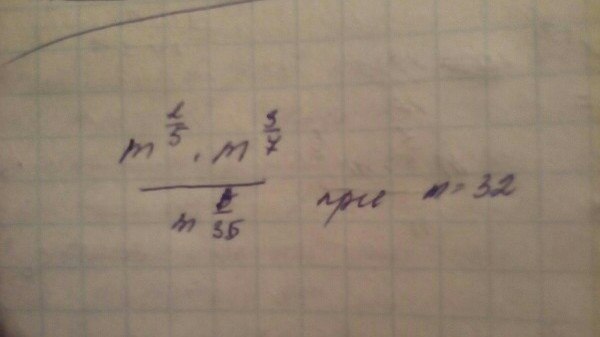 m^(2/5) · m^(3/7)
m^( /35) при m = 32